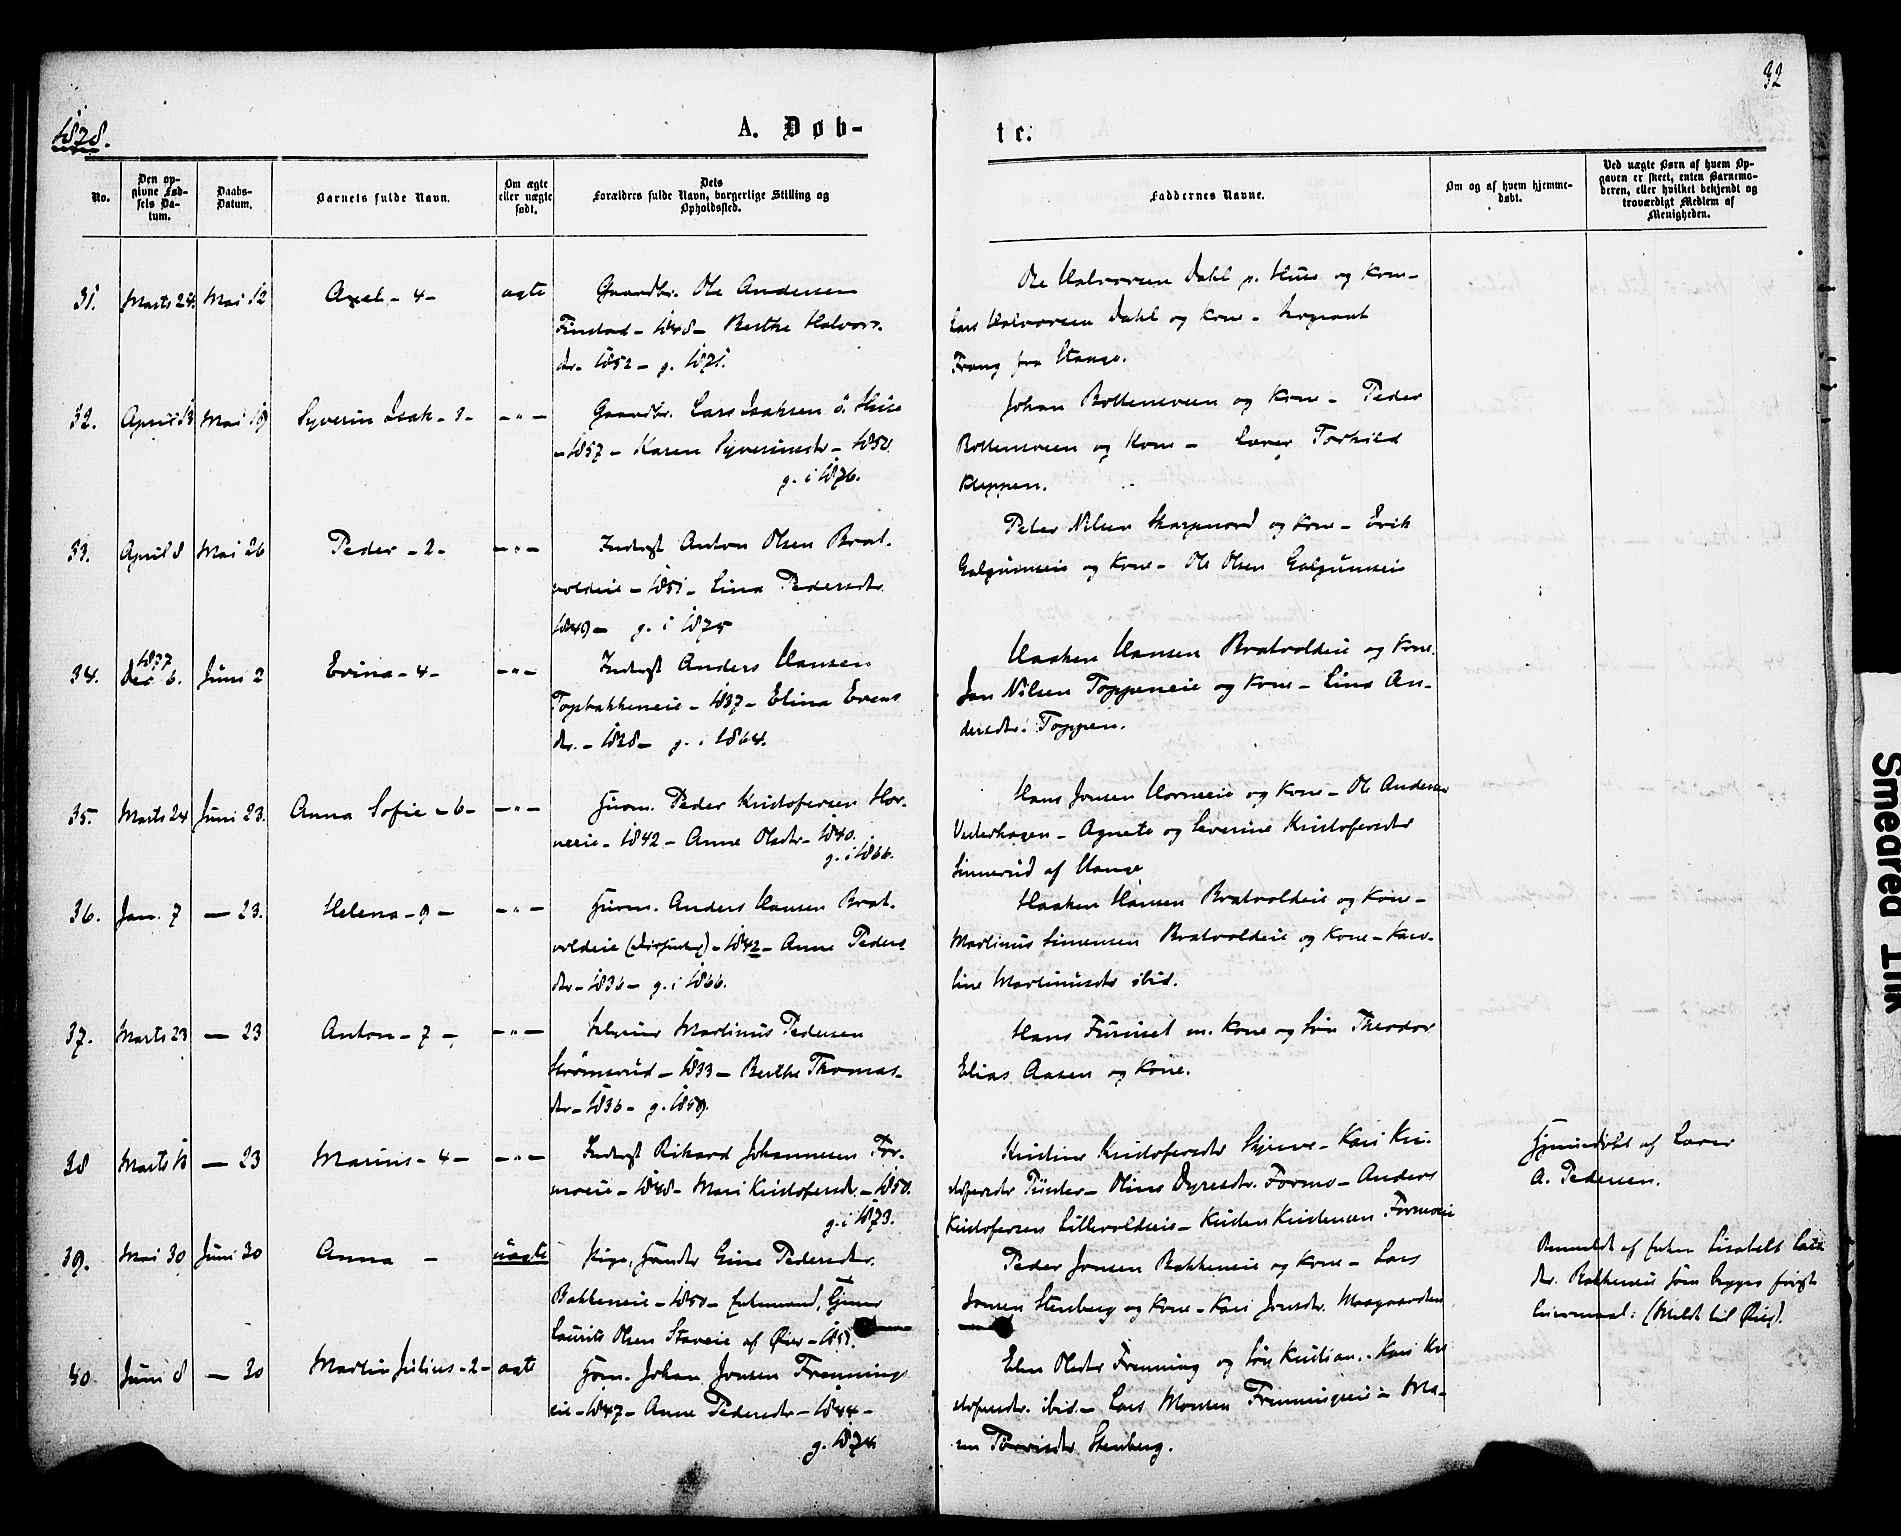 32
1878.
A. Døb-
te.
No.
Den op-
givne Fød-
sels Da-
tum.
Daabs-
Datum.
Barnets fulde Navn.
Om ægte
eller uægte
født.
Dets
Forældres fulde Navn, borgerlige Stilling og
Opholdssted.
Faddernes Navne.
Om og af hvem hjemme-
døbt.
Ved uægte Børn af hvem Op-
gaven er skeet, enten Barnemo-
deren, eller hvilket bekjendt og
troværdigt Medlem af
Menigheden.
31. Marts 24. Mai 12 Axel - 4 - ægte Gaardbr. Ole Andersen
Finstad - 1848 - Berthe Halvors-
dr. 1852 - g. 1871.
Ole Halvorsen Dahl p. Huse og Kone -
Lars Halvorsen Dahl og Kone - Sergeant
Frang fra Stange.
32. April 13 Mai 19 Syverin Isak - 3 - - " - Gaardbr. Lars Isaksen ö. Huse
- 1857 - Karen Syverinsdr - 1850.
g. i 1876.
Johan Bottenveen og Kone - Peder
Bottenveen og Kone - Lærer Torkild
Kleppen.
33. April 8 Mai 26 Peder - 2 - - " - Inderst Anton Olsen Brat-
voldeie - 1851 - Lina Pedersdtr
1849 - g. i 1875
Peter Nilsen Skarpnord og Kone - Erik
Galguneneie og Kone - Ole Olsen Galguneneie
34. 1877 Dec 6. Juni 2 Evina - 4 - - " - Inderst Anders Hansen
Topbakkeneie - 1837 - Elina Evens
dr. - 1838 - g. i 1864.
Haaken Hansen Bratvoldeie og Kone.
Jan Nilsen Toppeneie og Kone - Lina An-
dersdtr. Toppen.
35. Marts 24 Juni 23. Anna Sofie - 6 - - " - Husm. Peder Kristofersen Hor-
neeie - 1842 - Anne Olsdtr - 1840.
g. i 1866.
Hans Jonsen Horneeie og Kone - Ole Andersen
Vesterhagen - Agnete og Severine Kristofersdtr
Linnerud af Vange
36. Jan. 7 - 23. Helena - 9 - - " - Husm. Anders Hansen Brat-
voldeie - 1842 - Anne Peders
dtr - 1836 - g. i 1866.
Haaken Hansen Bratvoldeie og Kone -
Martinus Simensen Bratvoldeie og Kone - Karo-
line Martinusdtr ibid.
37. Marts 23 - 23 Anton - 7 - - " - Selveier Martinus Pedersen
Strømsrud - 1833 - Berthe Thomas-
dtr - 1836 - g. 1859.
Hans Furuset m. Kone og Søn Theodor
Elias Aasen og Kone.
38 Marts 18 - 23 Marius - 4 - - " - Inderst Rikard Johannesen For-
moeie - 1848 - Mari Kristofersdr. - 1850.
g. i 1873.
Kristine Kristofersdtr Skjerve - Kari Kri-
stofersdtr Tünder - Oline Dyresdtr. Formo - Anders
Kristofersen Lillevoldeie - Kristen Kristensen Formoeie
Hjemmedöbt af Lærer
A. Pedersen.
39. Mai 30 Juni 30 Anna - uægte Pige, Husmdtr Gine Pedersdtr.
Bakkeneie - 1850 - Enkemand,
Laurits Olsen Staveie af Öier - 1851.
Peder Jonsen Bakkeneie og Kone - Lars
Jonsen Stenberg og Kone - Kari Jonsdtr. Moegaarden
Anmeldt af Enken Lisabeth Lars
dtr. Bakkeneie
Leiermaal: (Meldt til Øier).
40. Juni 8 - 30 Martin Julius - 2 - ægte Hsm. Johan Jonsen Frenning-
eie - 1847 - Anne Pedersdtr - 1844 -
g. 1874.
Elen Olsdtr Frenning og Søn Kristian. - Kari Kri
stofersdtr. ibid. - Lars Monsen Frenningseie - Ma-
ren Torrisdtr Stenberg.
Smeared Ink